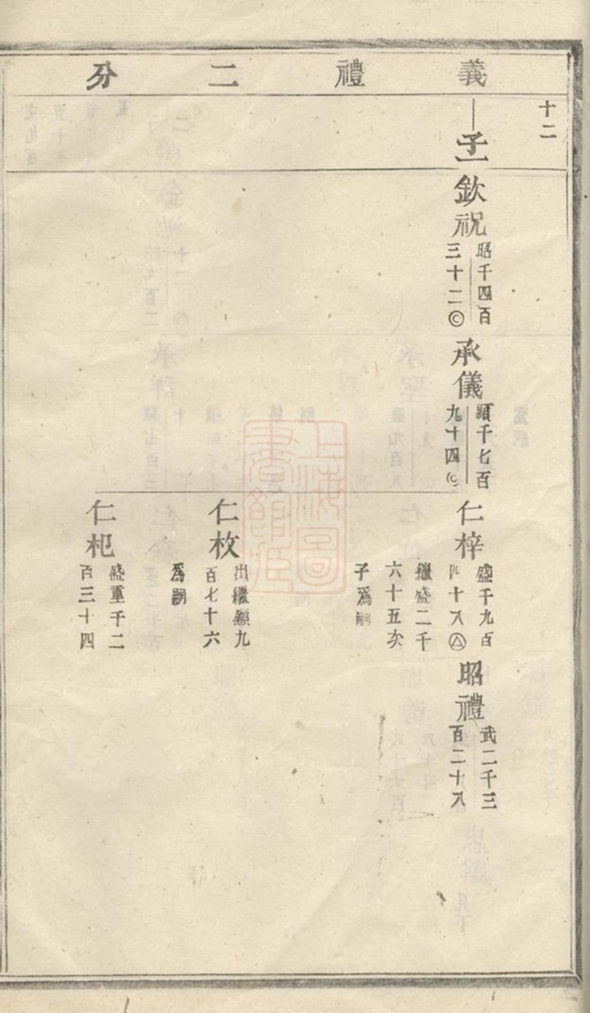 義禮二分
十二
子一
欽祝
昭千四百
三十二©
承儀
顯千七百
九十四©
仁梓
盛千九百
四十八△
繼盛二千
六十五次
子爲嗣
昭禮
武二千三
百二十八
仁枚
出繼顯九
百七十六
爲嗣
仁杞
盛重千二
百三十四
上海圖書館藏